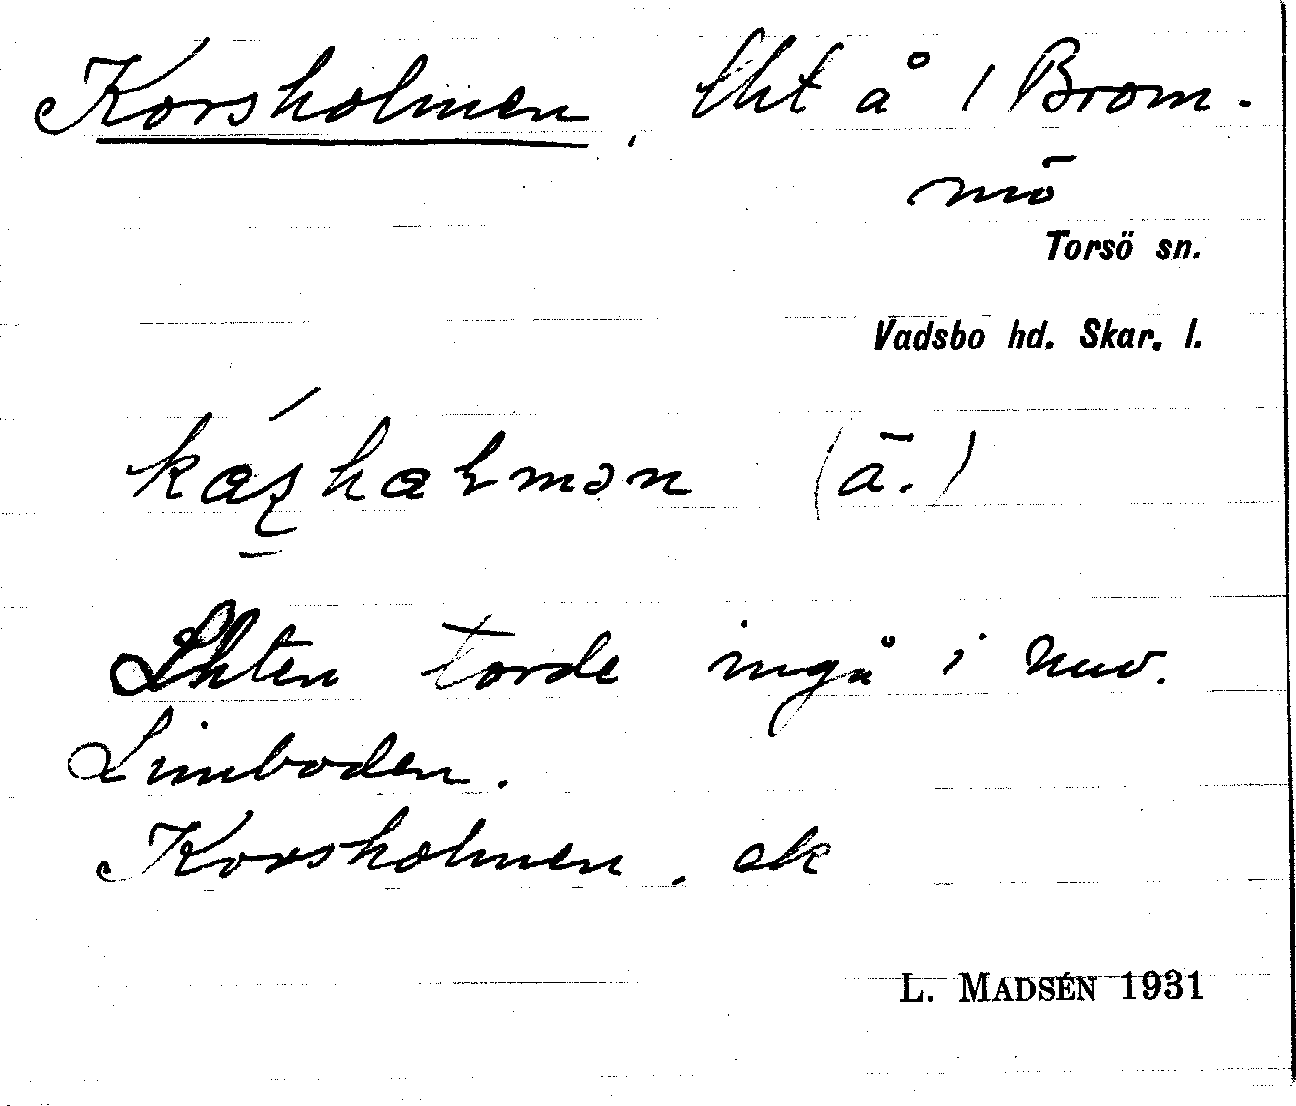 Korsholmen, Lht å 1 Brom-
mö
Torsö sn.
Vadsbo hd. Skar. l.
(ä.)
Lhten torde ingå i nuv.
Limboden.
Korsholmen. ak
L. MADSÉN 1931